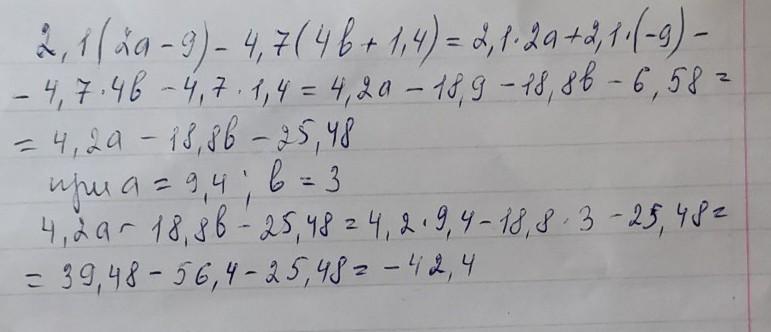 2,1(2a-9)-4,7(4b+1,4)=2,1·2a+2,1·(-9)-
-4,7·4b-4,7·1,4=4,2a-18,9-18,8b-6,58=
=4,2a-18,8b-25,48
при a=9,4; b=3
4,2a-18,8b-25,48=4,2·9,4-18,8·3-25,48=
=39,48-56,4-25,48=-42,4